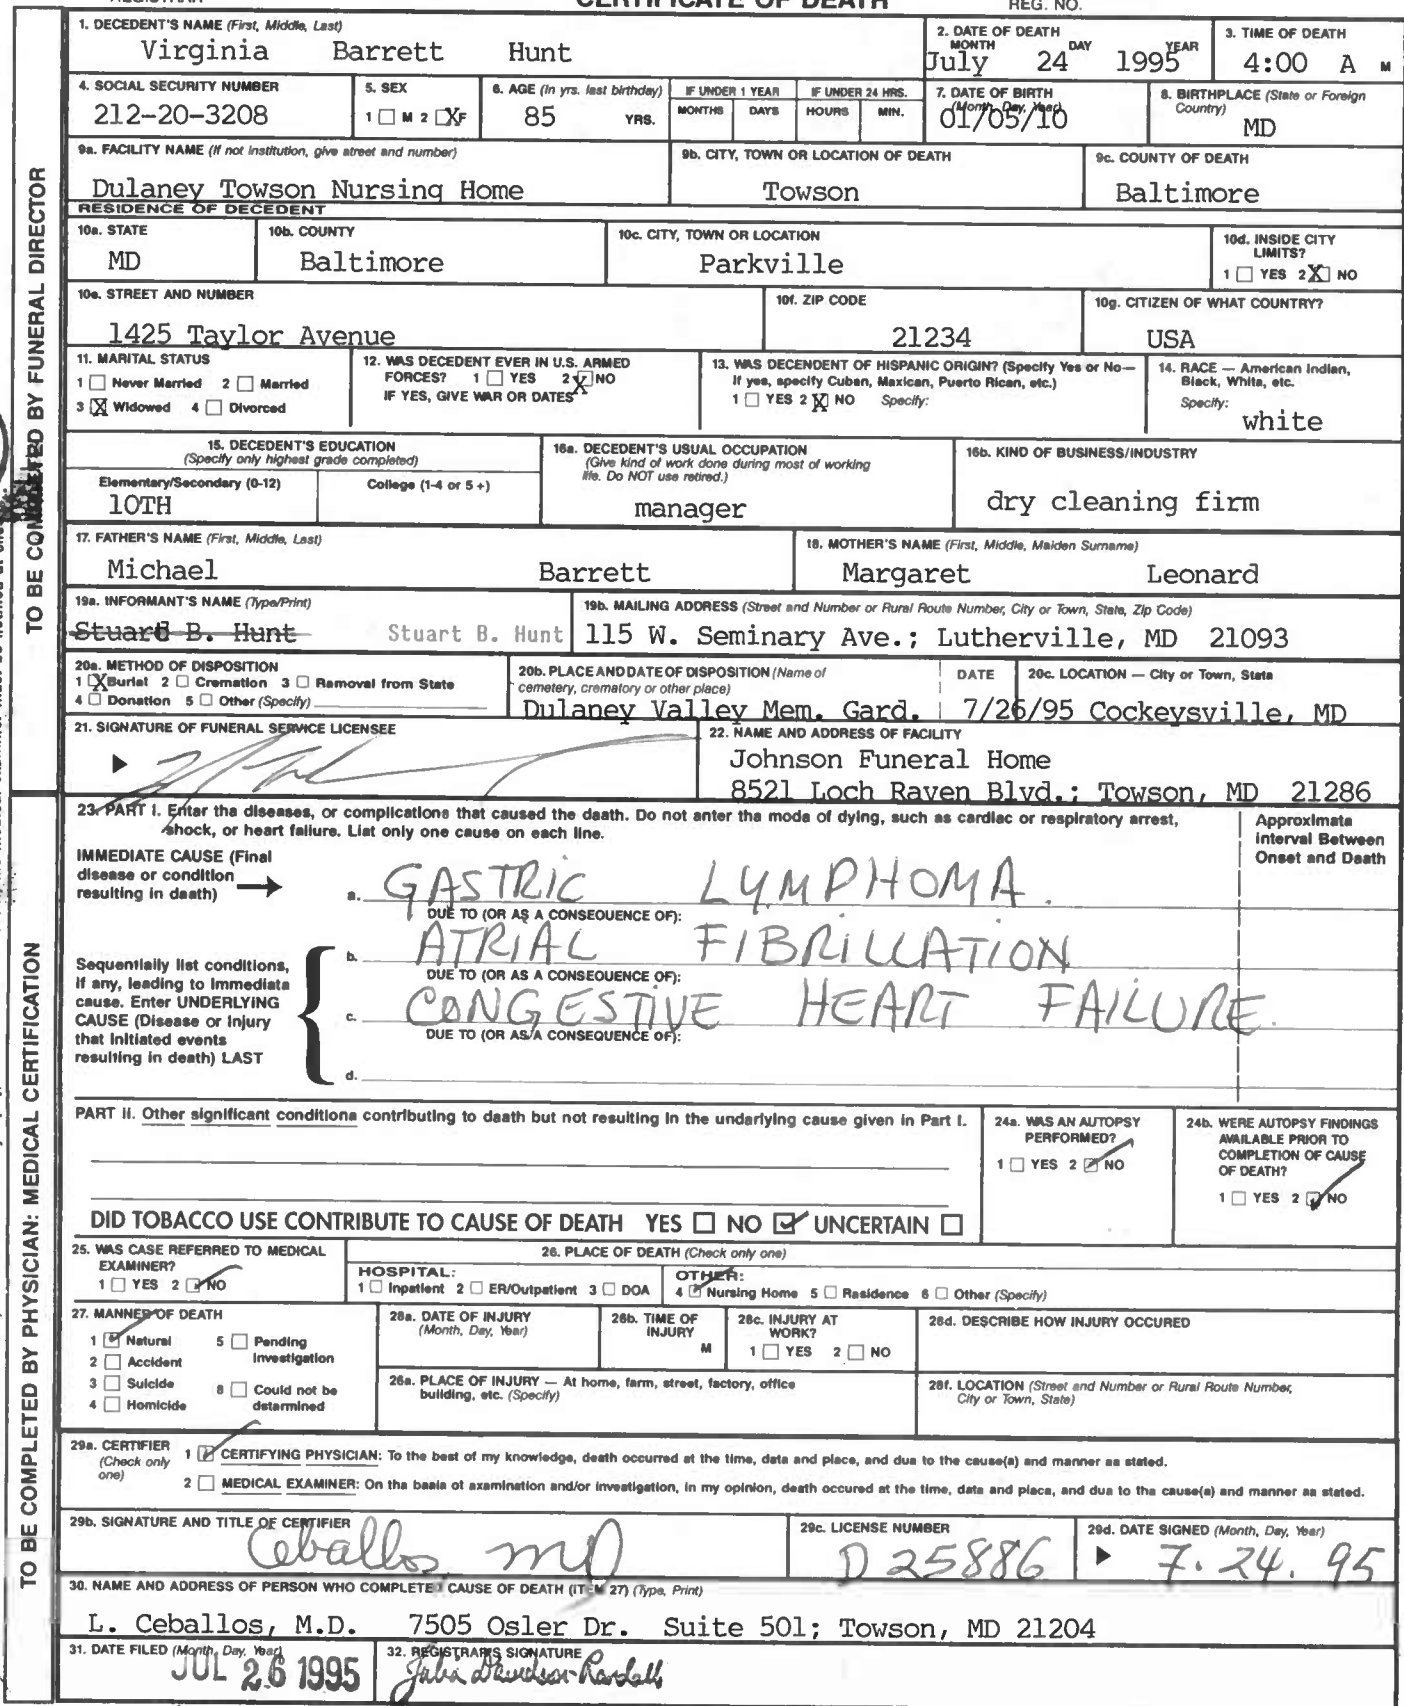 CERTIFICATE OF DEATH
REG. NO.
1. DECEDENT'S NAME (First, Middle, Last)
Virginia Barrett Hunt
2. DATE OF DEATH
MONTH DAY YEAR
July 24 1995
3. TIME OF DEATH
4:00 A M
4. SOCIAL SECURITY NUMBER
212-20-3208
5. SEX
1 ☐ M 2 ☒ F
6. AGE (In yrs. last birthday)
85 YRS.
IF UNDER 1 YEAR
MONTHS DAYS
IF UNDER 24 HRS.
HOURS MIN.
7. DATE OF BIRTH
(Month, Day, Year)
01/05/10
8. BIRTHPLACE (State or Foreign
Country)
MD
9a. FACILITY NAME (If not institution, give street and number)
Dulaney Towson Nursing Home
9b. CITY, TOWN OR LOCATION OF DEATH
Towson
9c. COUNTY OF DEATH
Baltimore
RESIDENCE OF DECEDENT
10a. STATE
MD
10b. COUNTY
Baltimore
10c. CITY, TOWN OR LOCATION
Parkville
10d. INSIDE CITY
LIMITS?
1 ☐ YES 2 ☒ NO
10e. STREET AND NUMBER
1425 Taylor Avenue
10f. ZIP CODE
21234
10g. CITIZEN OF WHAT COUNTRY?
USA
11. MARITAL STATUS
1 ☐ Never Married 2 ☐ Married
3 ☒ Widowed 4 ☐ Divorced
12. WAS DECEDENT EVER IN U.S. ARMED
FORCES? 1 ☐ YES 2 ☒ NO
IF YES, GIVE WAR OR DATES
13. WAS DECENDENT OF HISPANIC ORIGIN? (Specify Yes or No—
If yes, specify Cuban, Maxican, Puerto Rican, etc.)
1 ☐ YES 2 ☒ NO Specify:
14. RACE — American Indian,
Black, White, etc.
Specify:
white
15. DECEDENT'S EDUCATION
(Specify only highest grade completed)
Elementary/Secondary (0-12)
College (1-4 or 5+)
10TH
16a. DECEDENT'S USUAL OCCUPATION
(Give kind of work done during most of working
life. Do NOT use retired.)
manager
16b. KIND OF BUSINESS/INDUSTRY
dry cleaning firm
17. FATHER'S NAME (First, Middle, Last)
Michael Barrett
18. MOTHER'S NAME (First, Middle, Maiden Surname)
Margaret Leonard
19a. INFORMANT'S NAME (Type/Print)
Stuard B. Hunt Stuart B. Hunt
19b. MAILING ADDRESS (Street and Number or Rural Route Number, City or Town, State, Zip Code)
115 W. Seminary Ave.; Lutherville, MD 21093
20a. METHOD OF DISPOSITION
1 ☒ Burial 2 ☐ Cremation 3 ☐ Ramoval from State
4 ☐ Donation 5 ☐ Other (Specify)
20b. PLACE AND DATE OF DISPOSITION (Name of
cemetery, crematory or other place)
Dulaney Valley Mem. Gard.
DATE
7/26/95
20c. LOCATION — City or Town, Stata
Cockeysville, MD
21. SIGNATURE OF FUNERAL SERVICE LICENSEE
22. NAME AND ADDRESS OF FACILITY
Johnson Funeral Home
8521 Loch Raven Blvd.; Towson, MD 21286
TO BE COMPLETED BY FUNERAL DIRECTOR
23. PART I. Enter tha diseases, or complications that caused the daath. Do not anter tha moda of dying, such as cardiac or respiratory arrest,
shock, or heart failure. Liat only one cause on each line.
Approximata
interval Between
Onset and Daath
IMMEDIATE CAUSE (Final
disease or condition
resulting in daath)
a. GASTRIC LYMPHOMA.
DUE TO (OR AS A CONSEQUENCE OF):
b. ATRIAL FIBRILLATION
DUE TO (OR AS A CONSEQUENCE OF):
c. CONGESTIVE HEART FAILURE.
DUE TO (OR AS A CONSEQUENCE OF):
d.
Sequentially list conditions,
if any, leading to immediata
cause. Enter UNDERLYING
CAUSE (Disease or injury
that initiated events
resulting in death) LAST
PART II. Other significant conditiona contributing to daath but not resulting in the underlying cause given in Part I.
24a. WAS AN AUTOPSY
PERFORMED?
1 ☐ YES 2 ☑ NO
24b. WERE AUTOPSY FINDINGS
AVAILABLE PRIOR TO
COMPLETION OF CAUSE
OF DEATH?
1 ☐ YES 2 ☑ NO
DID TOBACCO USE CONTRIBUTE TO CAUSE OF DEATH YES ☐ NO ☑ UNCERTAIN ☐
25. WAS CASE REFERRED TO MEDICAL
EXAMINER?
1 ☐ YES 2 ☑ NO
26. PLACE OF DEATH (Check only one)
HOSPITAL:
1 ☐ Inpatient 2 ☐ ER/Outpatient 3 ☐ DOA
OTHER:
4 ☑ Nursing Home 5 ☐ Rasidence 6 ☐ Other (Specify)
27. MANNER OF DEATH
1 ☑ Natural 5 ☐ Pending
Investigation
2 ☐ Accident
3 ☐ Suicide 8 ☐ Could not be
datarmined
4 ☐ Homicide
28a. DATE OF INJURY
(Month, Day, Year)
26b. TIME OF
INJURY
M
28c. INJURY AT
WORK?
1 ☐ YES 2 ☐ NO
28d. DESCRIBE HOW INJURY OCCURED
26a. PLACE OF INJURY — At home, farm, street, factory, office
building, etc. (Specify)
28f. LOCATION (Street and Number or Rural Route Number,
City or Town, State)
29a. CERTIFIER
(Check only
one)
1 ☑ CERTIFYING PHYSICIAN: To the best of my knowledge, death occurred at the time, data and place, and due to the cause(a) and manner aa stated.
2 ☐ MEDICAL EXAMINER: On tha baaia ot axamination and/or investigation, in my opinion, death occured at the time, data and placa, and dua to the cause(a) and manner aa stated.
29b. SIGNATURE AND TITLE OF CERTIFIER
Ceballos, MD
29c. LICENSE NUMBER
D 25886
29d. DATE SIGNED (Month, Day, Year)
7. 24. 95
30. NAME AND ADDRESS OF PERSON WHO COMPLETED CAUSE OF DEATH (ITEM 27) (Type, Print)
L. Ceballos, M.D. 7505 Osler Dr. Suite 501; Towson, MD 21204
31. DATE FILED (Month, Day, Year)
JUL 26 1995
32. REGISTRAR'S SIGNATURE
Julia Davidson-Randall
TO BE COMPLETED BY PHYSICIAN: MEDICAL CERTIFICATION